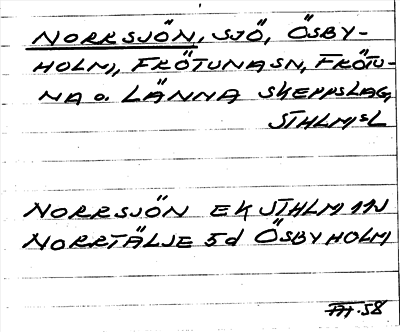 NORRSJÖN, SJÖ, ÖSBY-
HOLM, FRÖTUNA SN, FRÖTU-
NA o. LÄNNA SKEPPSLAG,
STHLMSL
NORRSJÖN EK STHLM 11N
NORRTÄLJE 5d ÖSBYHOLM
58